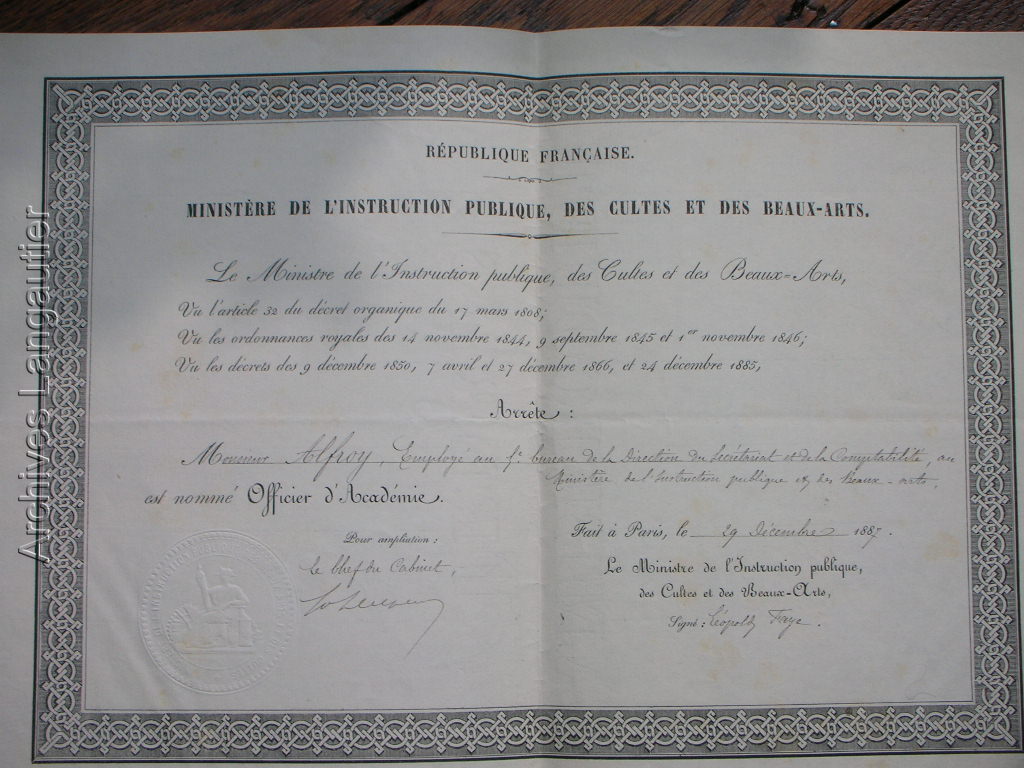 RÉPUBLIQUE FRANÇAISE.
MINISTÈRE DE L'INSTRUCTION PUBLIQUE, DES CULTES ET DES BEAUX-ARTS.
Le Ministre de l'Instruction publique, des Cultes et des Beaux-Arts,
Vu l'article 32 du décret organique du 17 mars 1808;
Vu les ordonnances royales des 14 novembre 1844, 9 septembre 1845 et 1er novembre 1846;
Vu les décrets des 9 décembre 1850, 7 avril et 27 décembre 1866, et 24 décembre 1885,
Arrête :
Monsieur Alfroy, Employé au bureau de la Direction du Secrétariat et de la Comptabilité, au
Ministère de l'Instruction publique et des Beaux-arts,
est nommé Officier d'Académie.
Fait à Paris, le 29 Décembre 1887.
Pour ampliation :
le Chef du Cabinet,
Le Ministre de l'Instruction publique,
des Cultes et des Beaux-Arts,
Signé : Léopold Faye.
Archives Langautier